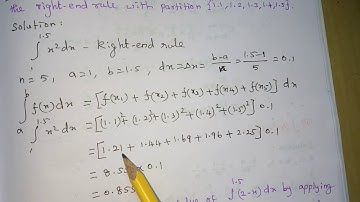 the right-end rule with partition {1.1, 1.2, 1.3, 1.4, 1.5}.
Solution:
∫₁^1.5 x²dx - Right-end rule
n = 5, a=1, b=1.5, dx=Δx= b-a/n = 1.5-1/5 = 0.1
∫ₐ^b f(x)dx = [f(x₁) + f(x₂) + f(x₃) + f(x₄) + f(x₅)] dx
∫₁^1.5 x²dx = [(1.1)²+(1.2)²+(1.3)²+(1.4)²+(1.5)²] 0.1
= [1.21 + 1.44 + 1.69 + 1.96 + 2.25] 0.1
= 8.55 × 0.1
= 0.855
of ∫^1.5 (2-x)dx by applying